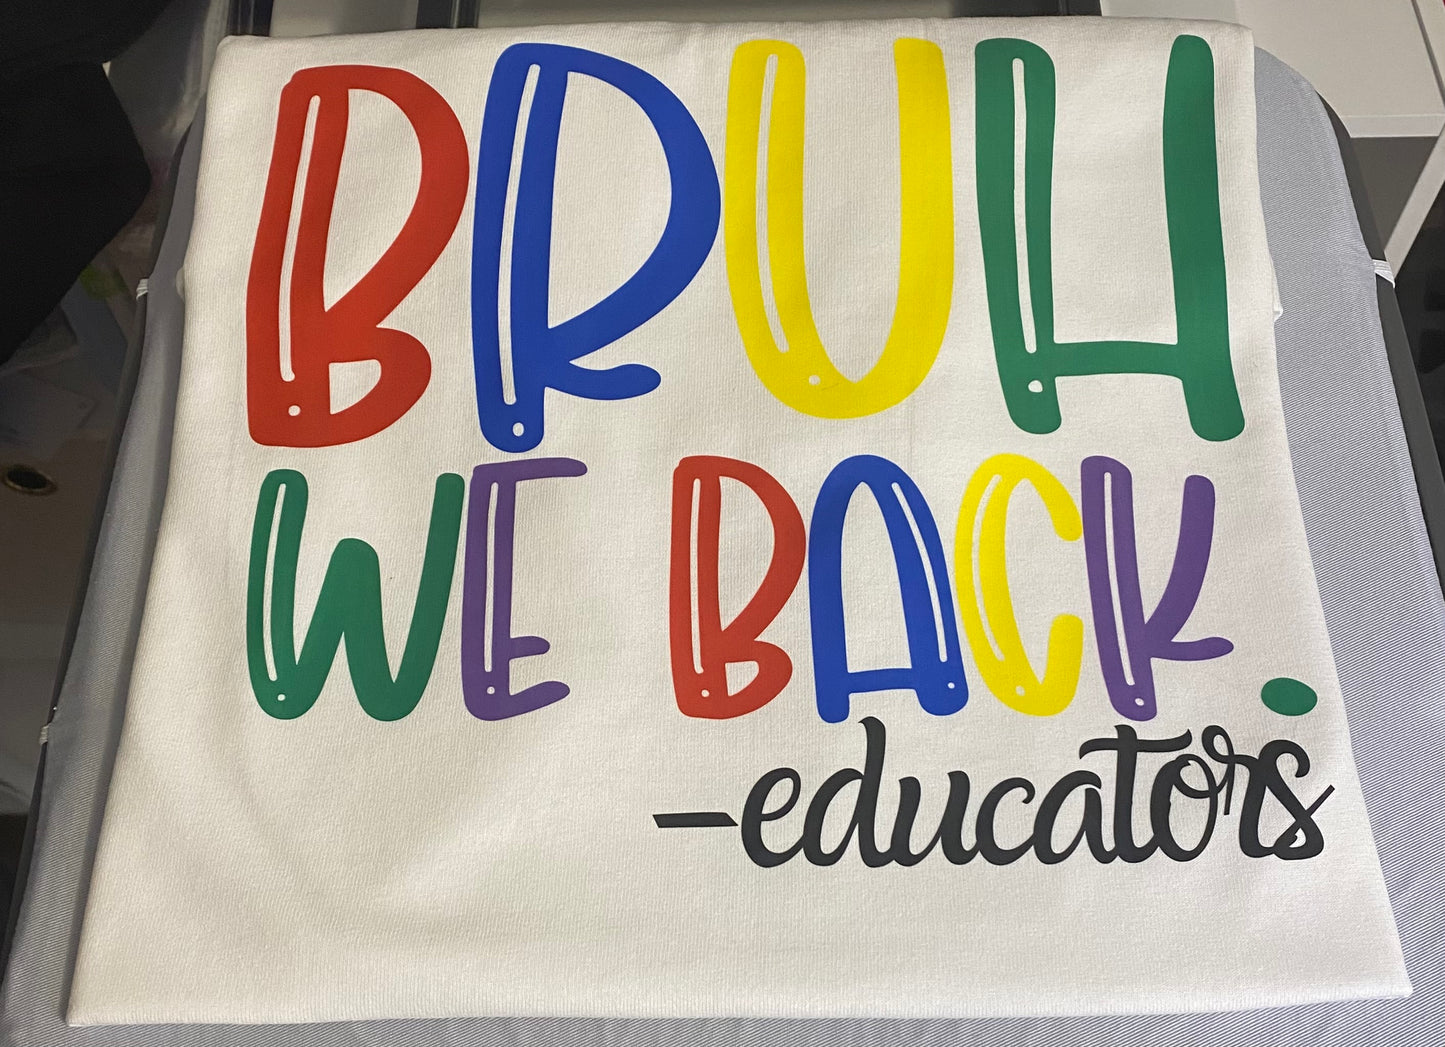 BRUH
WE BACK.
-educators